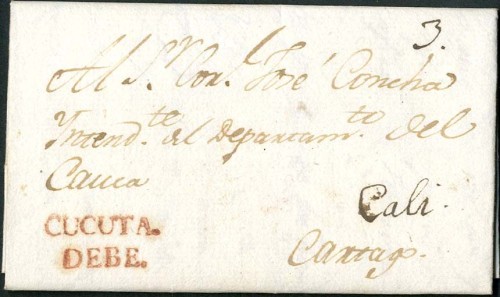 3.
Al S.r Cor.l José Concha
Intend.te del Departam.to del
Cauca
Cali.
CUCUTA.
DEBE.
Cartago.